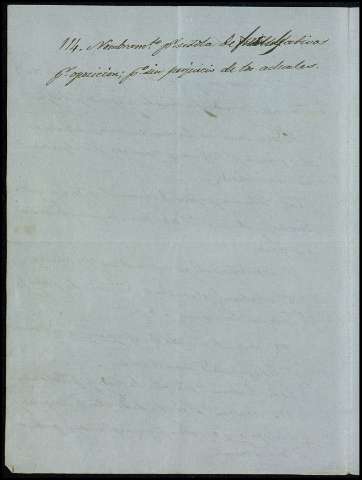 114. Nombramto pr. de facultativos
pr. oposicion; pr. sin perjuicio de los actuales.